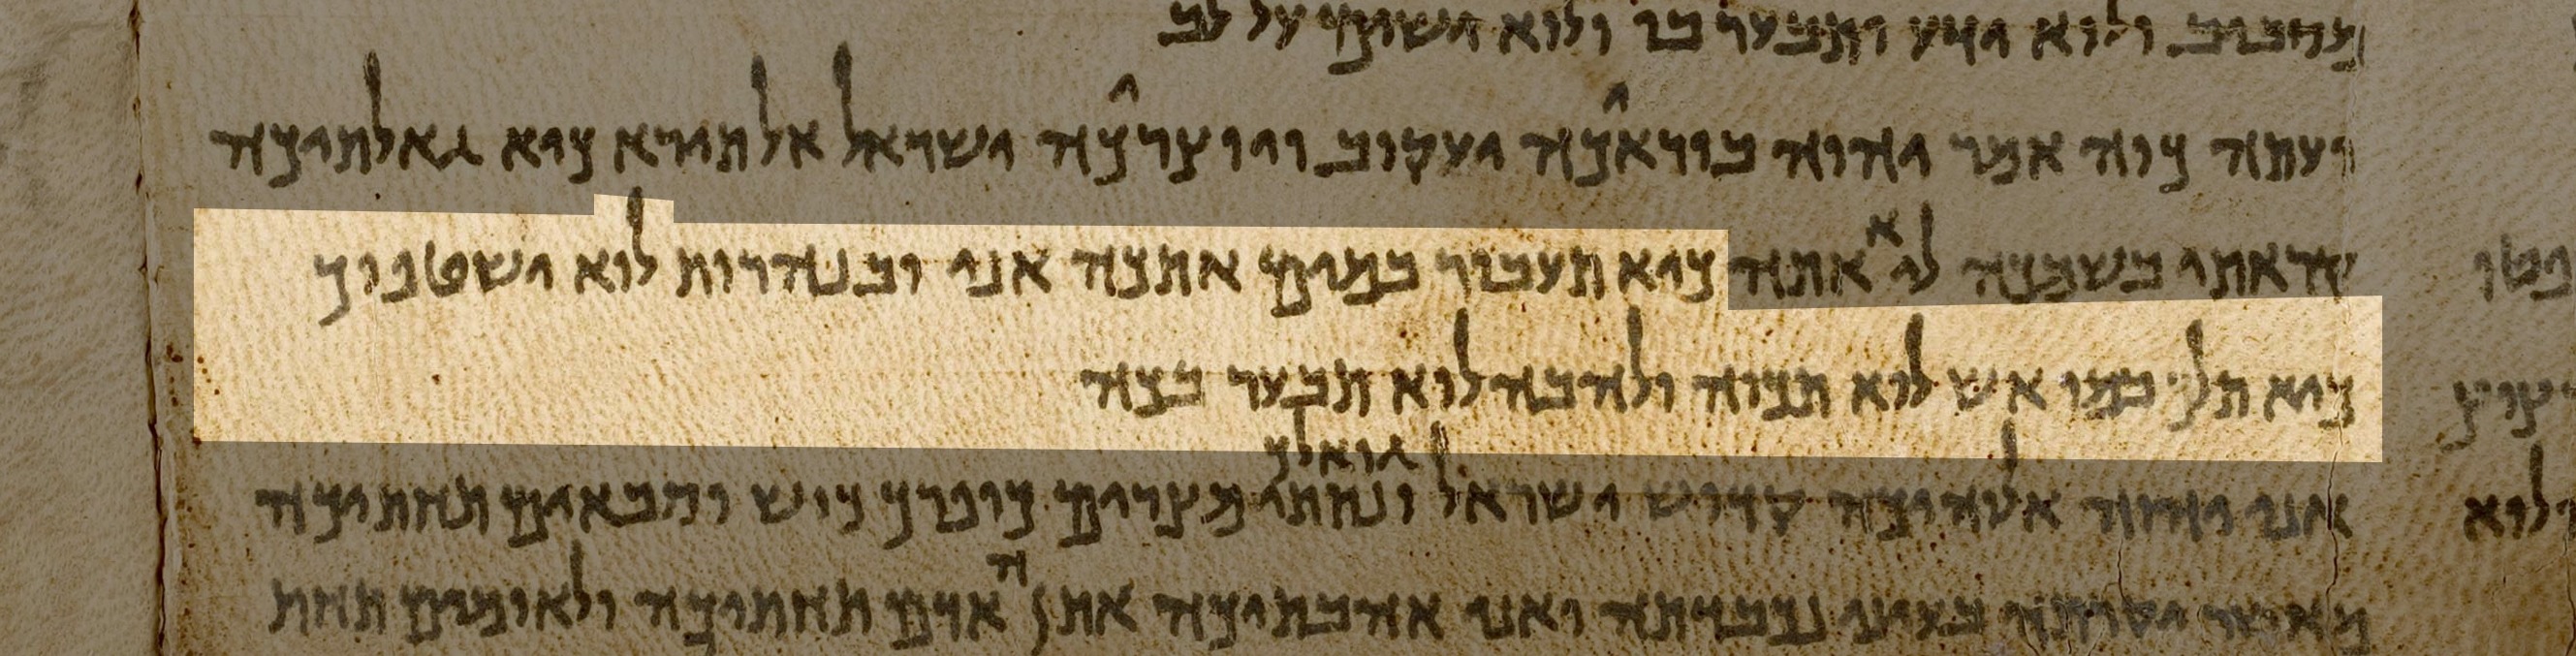 מסביב ולוא ידע ותבער בו ולוא ישים על לב
ועתה כוה אמר יהוה בוראכה יעקוב ויוצרכה ישראל אל תירא כיא גאלתיכה
קראתי בשמכה ליא אתה כיא תעבור במים אתכה אני ובנהרות לוא ישטפוך
כיא תלך במו אש לוא תכוה ולהבה לוא תבער בכה
גואלך
אני יהוה אלוהיכה קדוש ישראל ונתתי מצרים כופרך כוש וסבאים תחתיכה
מאשר יקרתה בעיני נכבדתה ואני אהבתיכה אתן האדם תחתיכה ולאומים תחת